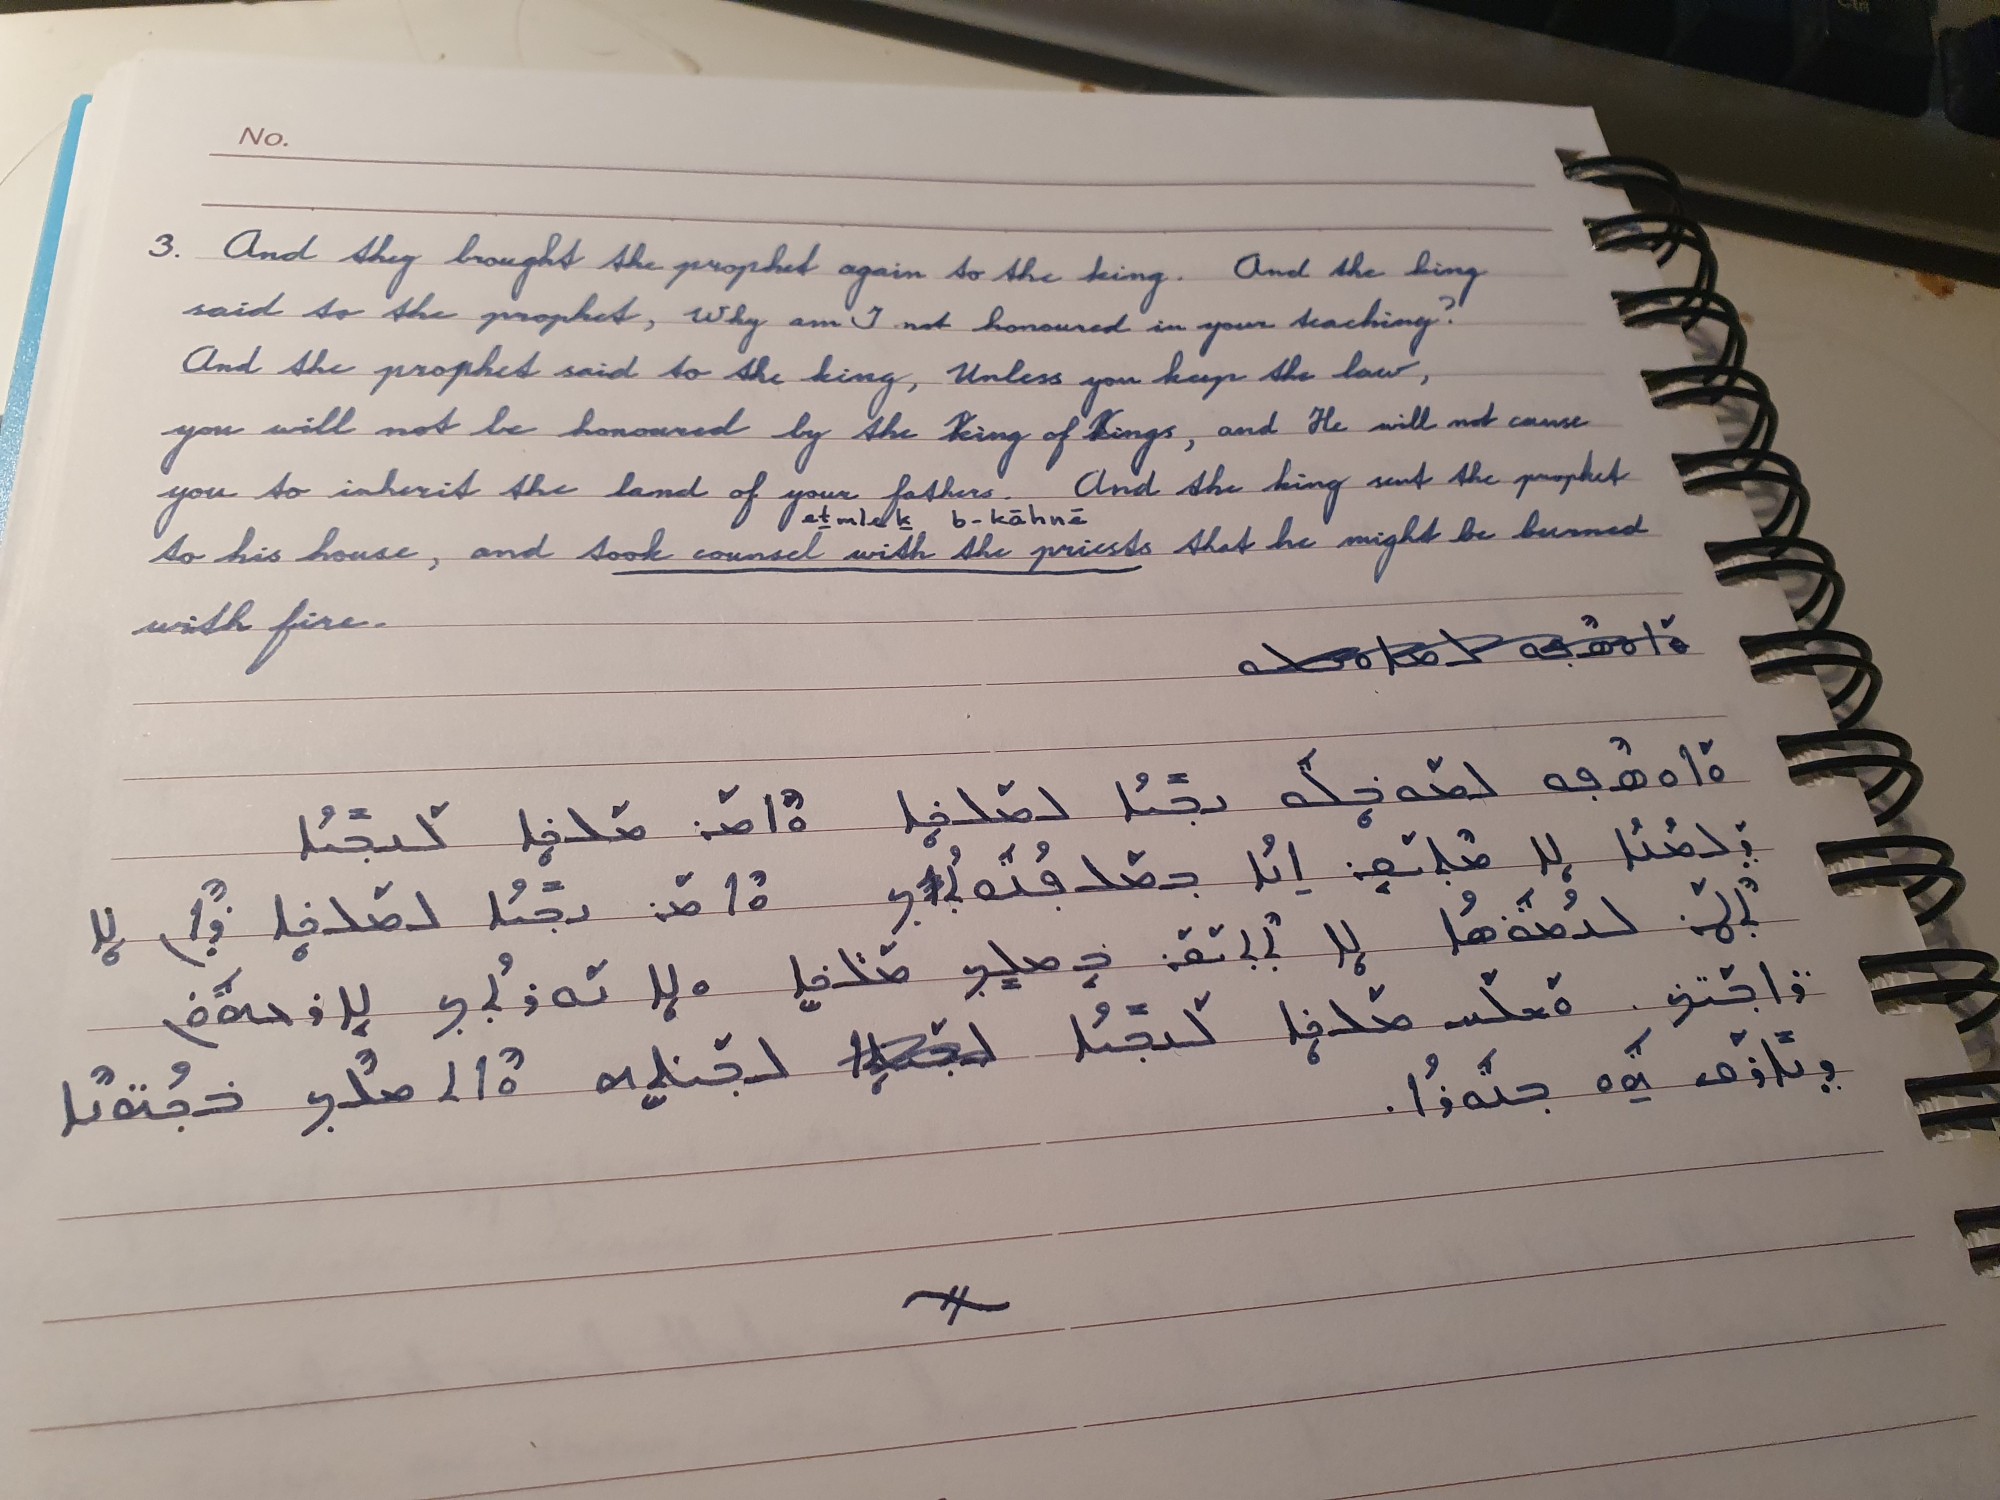 No.
3. And they brought the prophet again to the king. And the king
said to the prophet, Why am I not honoured in your teaching?
And the prophet said to the king, Unless you keep the law,
you will not be honoured by the King of Kings, and He will not cause
you to inherit the land of your fathers. And the king sent the prophet
eṯmleḵ b-kāhnē
to his house, and took counsel with the priests that he might be burned
with fire.
ܘܐܘܣܦܘ
ܘܐܘܣܦܘ ܠܡܘܒܠܘ ܢܒܝܐ ܠܡܠܟܐ ܘܐܡܪ ܡܠܟܐ ܠܢܒܝܐ
ܕܠܡܢܐ ܠܐ ܡܬܝܩܪ ܐܢܐ ܒܡܠܦܢܘܬܟ ܘܐܡܪ ܢܒܝܐ ܠܡܠܟܐ ܠܐ
ܬܛܪ ܠܢܡܘܣܐ ܠܐ ܬܬܝܩܪ ܡܠܟܐ ܘܠܐ ܢܘܪܬܟ
ܕܐܒܗܝܟ. ܘܫܠܚ ܡܠܟܐ ܠܢܒܝܐ ܠܒܝܬܗ ܘܐܬܡܠܟ ܒܟܗܢܐ
ܕܢܐܩܕ ܒܢܘܪܐ.